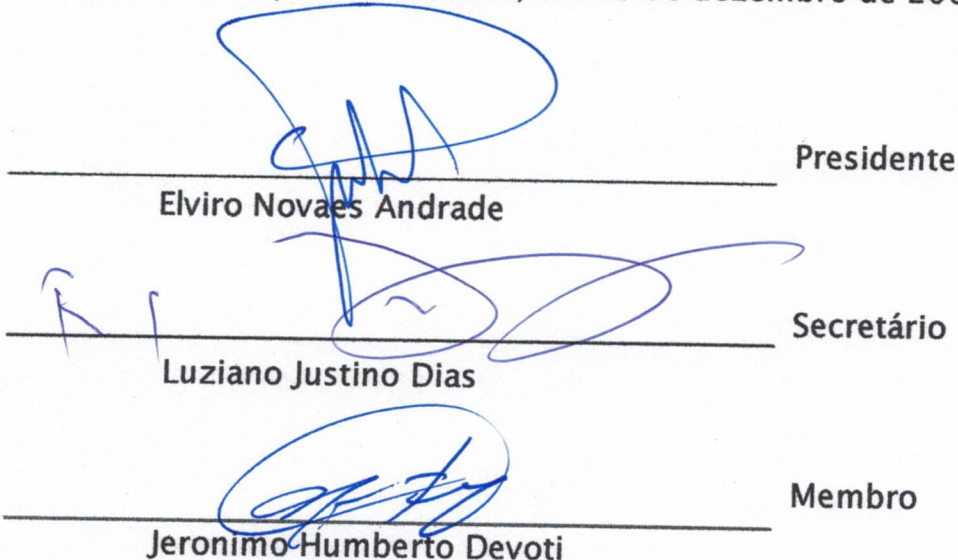 dezembro de
Presidente
Elviro Novaes Andrade
Secretário
Luziano Justino Dias
Membro
Jeronimo Humberto Devoti